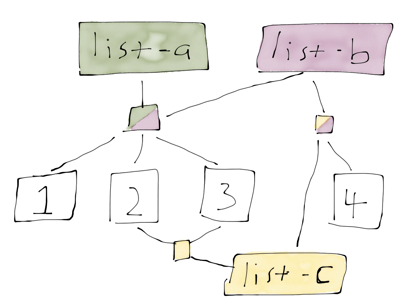 list-a
list-b
1
2
3
4
list-c